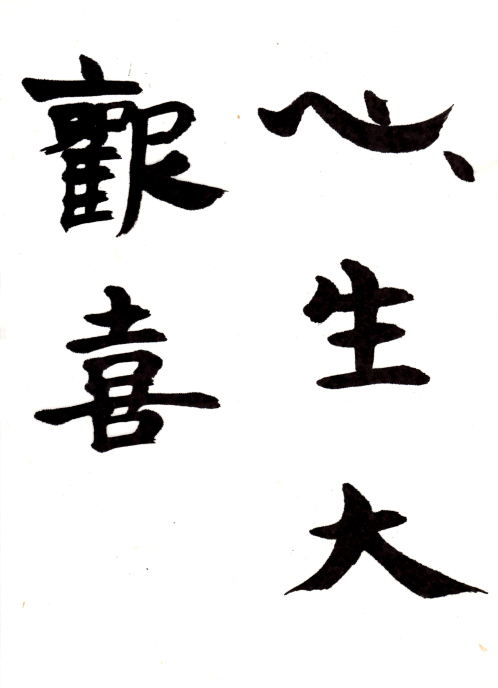 心生大
歡喜